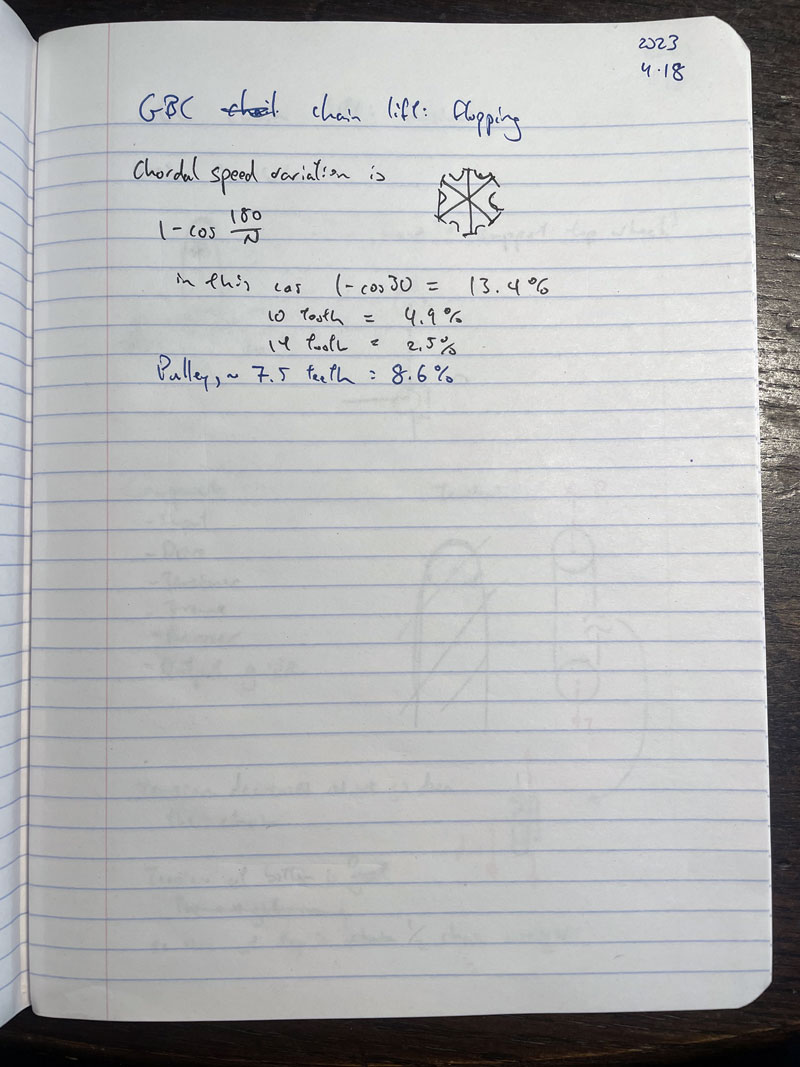 2023
4.18
GBC chain lift: flopping
Chordal speed variation is
1-cos 180/N
in this cas 1-cos30 = 13.4%
10 tooth = 4.9%
14 tooth = 2.5%
Pulley, ~ 7.5 teeth = 8.6%